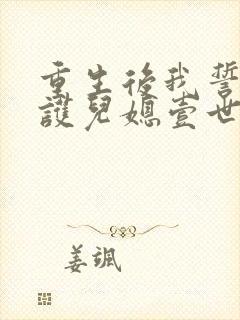 重生後我誓
護兒媳壹世
姜颯